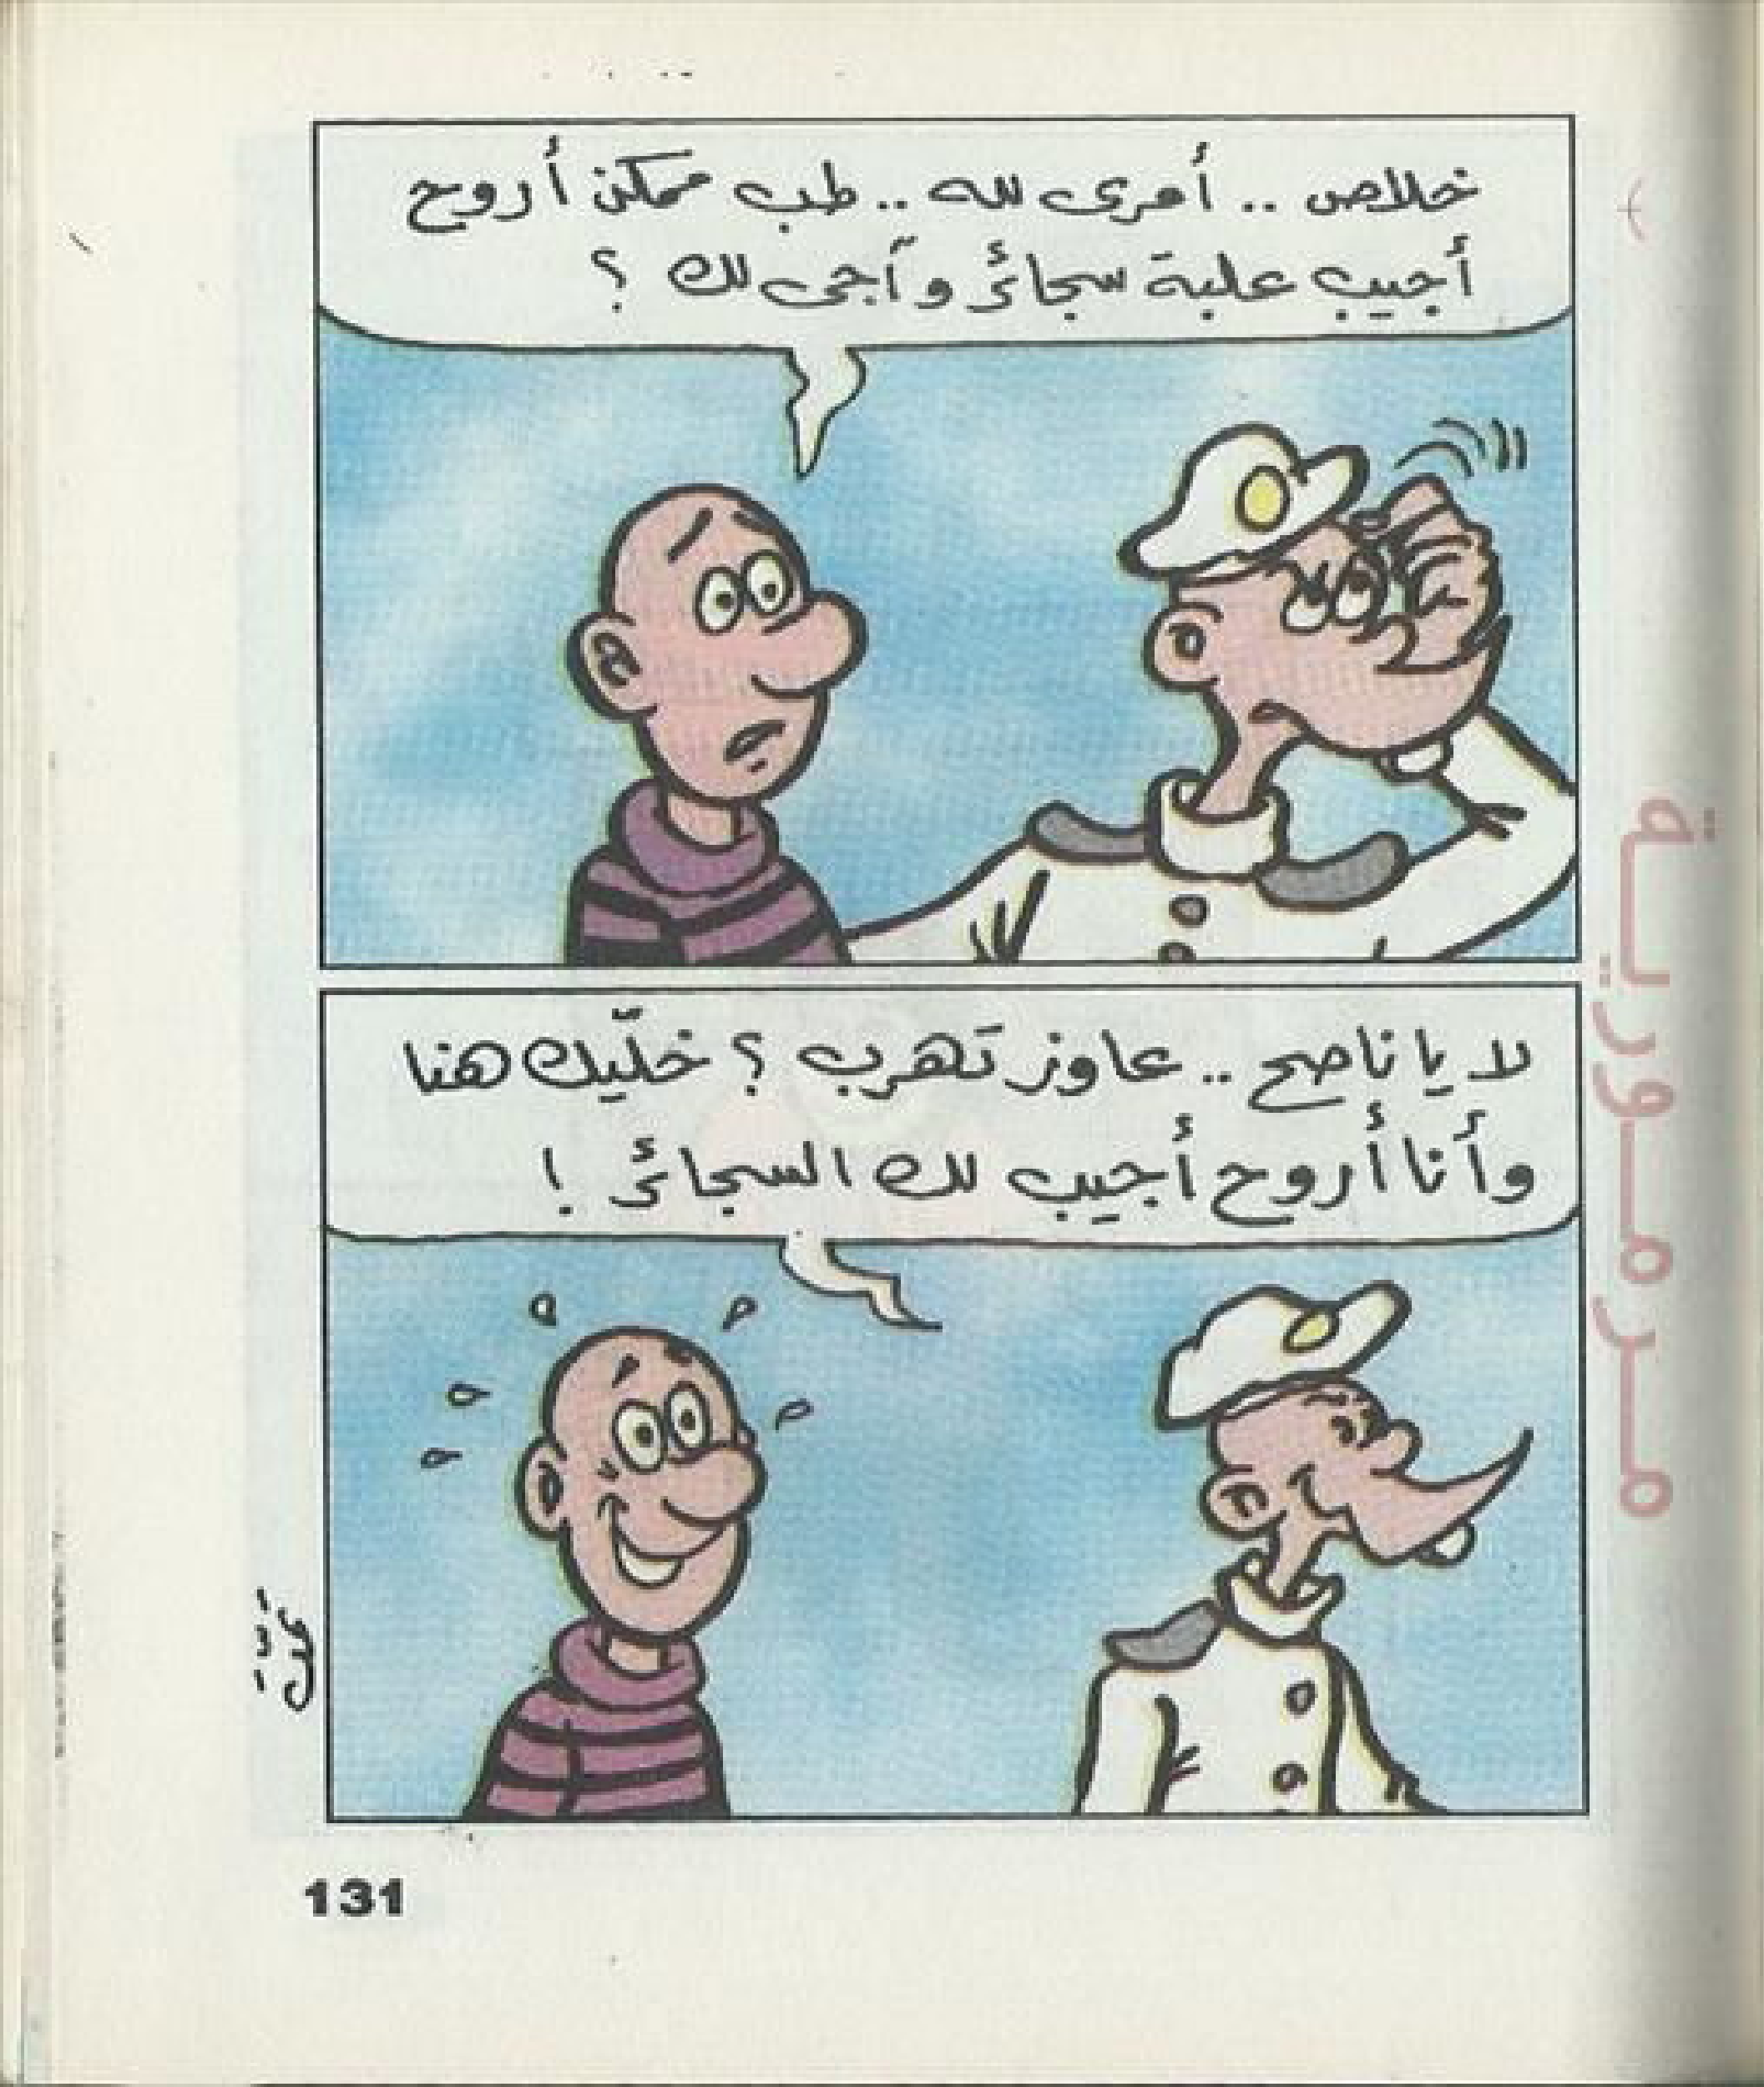 خلاص .. أمرى لله .. طب ممكن أروح
أجيب علبة سجائر وآجى لك ؟
لا يا ناصح .. عاوز تهرب ؟ خلّيك هنا
وأنا أروح أجيب لك السجائر !
131
مرمورية